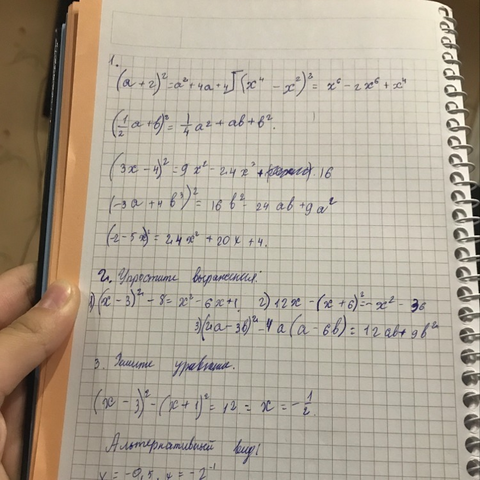 1.
(a + 2)² = a² + 4a + 4 (x⁴ - x²)² = x⁶ - 2x⁶ + x⁴
(1/2 a + b)² = 1/4 a² + ab + b².
(3x - 4)² = 9x² - 24x² + 16
(-3a + 4b)² = 16b² - 24ab + 9a²
(-2 - 5x)² = 2,4x² + 20x + 4.
2. Упростите выражения:
1) (x - 3)² - 8 = x² - 6x + 1 2) 12x - (x + 6)² = - x² - 36
3) (2a - 3b)² - 4a(a - 6b) = 12ab + 9b²
3. уравнение.
(x - 3)² - (x + 1)² = 12 = x = - 1/2.
Альтернативный вид:
x = -0,5, x = -2⁻¹